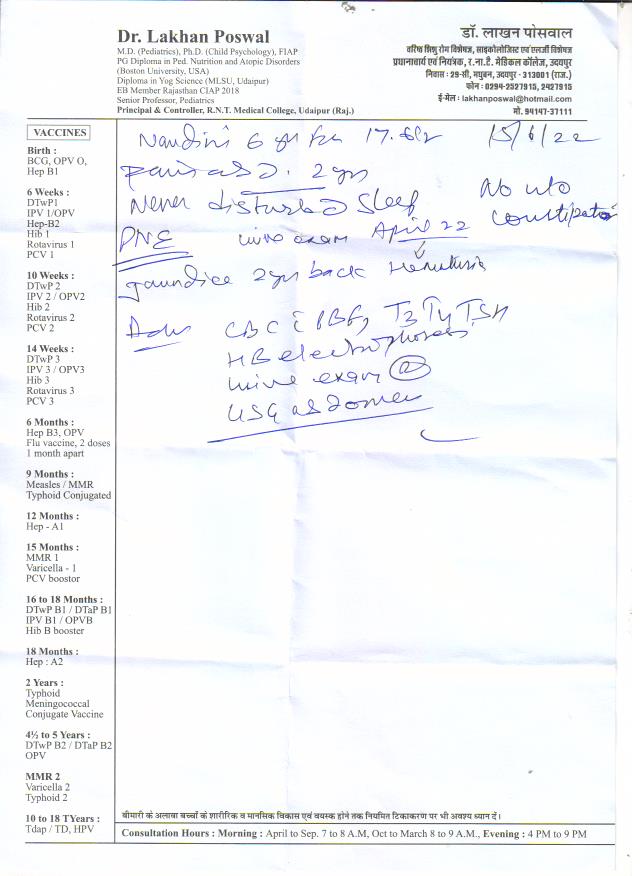 Dr. Lakhan Poswal
M.D. (Pediatrics), Ph.D. (Child Psychology), FIAP
PG Diploma in Ped. Nutrition and Atopic Disorders
(Boston University, USA)
Diploma in Yog Science (MLSU, Udaipur)
EB Member Rajasthan CIAP 2018
Senior Professor, Pediatrics
Principal & Controller, R.N.T. Medical College, Udaipur (Raj.)
डॉ. लाखन पोसवाल
वरिष्ठ शिशु रोग विशेषज्ञ, साइकोलोजिस्ट एवं एलर्जी विशेषज्ञ
प्रधानाचार्य एवं नियंत्रक, र.ना.टै. मेडिकल कॉलेज, उदयपुर
निवास : 29-सी, मधुबन, उदयपुर - 313001 (राज.)
फोन : 0294-2527915, 2427915
ई-मेल : lakhanposwal@hotmail.com
मो. 94147-37111
VACCINES
Birth :
BCG, OPV O,
Hep B1
6 Weeks :
DTwP1
IPV 1/OPV
Hep-B2
Hib 1
Rotavirus 1
PCV 1
10 Weeks :
DTwP 2
IPV 2 / OPV2
Hib 2
Rotavirus 2
PCV 2
14 Weeks :
DTwP 3
IPV 3 / OPV3
Hib 3
Rotavirus 3
PCV 3
6 Months :
Hep B3, OPV
Flu vaccine, 2 doses
1 month apart
9 Months :
Measles / MMR
Typhoid Conjugated
12 Months :
Hep - A1
15 Months :
MMR 1
Varicella - 1
PCV boostor
16 to 18 Months :
DTwP B1 / DTaP B1
IPV B1 / OPVB
Hib B booster
18 Months :
Hep : A2
2 Years :
Typhoid
Meningococcal
Conjugate Vaccine
4½ to 5 Years :
DTwP B2 / DTaP B2
OPV
MMR 2
Varicella 2
Typhoid 2
10 to 18 TYears :
Tdap / TD, HPV
Nandini 6 yr 15/6/22
2 yrs
Never disturbed Sleep No
constipation
PNE urine exam April 22
jaundice 2 yr back
Adv CBC PBF, T3 T4 TSH
HB electrophoresis
urine exam
USG abdomen
बीमारी के अलावा बच्चों के शारीरिक व मानसिक विकास एवं वयस्क होने तक नियमित टिकाकरण पर भी अवश्य ध्यान दें।
Consultation Hours : Morning : April to Sep. 7 to 8 A.M, Oct to March 8 to 9 A.M., Evening : 4 PM to 9 PM